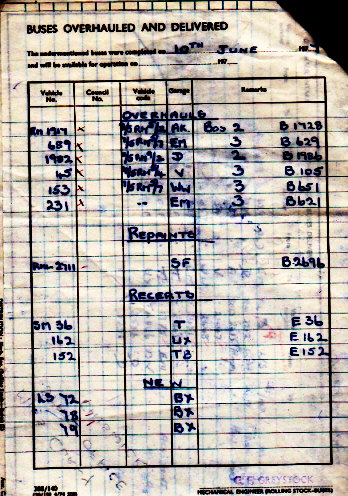 BUSES OVERHAULED AND DELIVERED
The undermentioned buses were completed on 10TH JUNE 197
and will be available for operation on 197
Vehicle No. Council No. Vehicle code Garage Remarks
OVERHAULS
RM 1917 x AK BOD 2 B 1928
689 x EM 3 B 629
1982 x D 2 B 1986
65 x V 3 B 105
153 x WW 3 B 651
231 x -- EM 3 B 621
REPAINTS
RM-2711 SF B 2696
RECERTS
SM 36 T E 36
162 UX E 162
152 TB E 152
NEW
LS 72 BX
78 BX
79 BX
G E GREYSTOCK
MECHANICAL ENGINEER (ROLLING STOCK-BUSES)